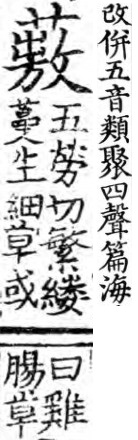 改併五音類聚四聲篇海
䕕
五勞切繁縷
蔓生細草或
曰雞
腸草